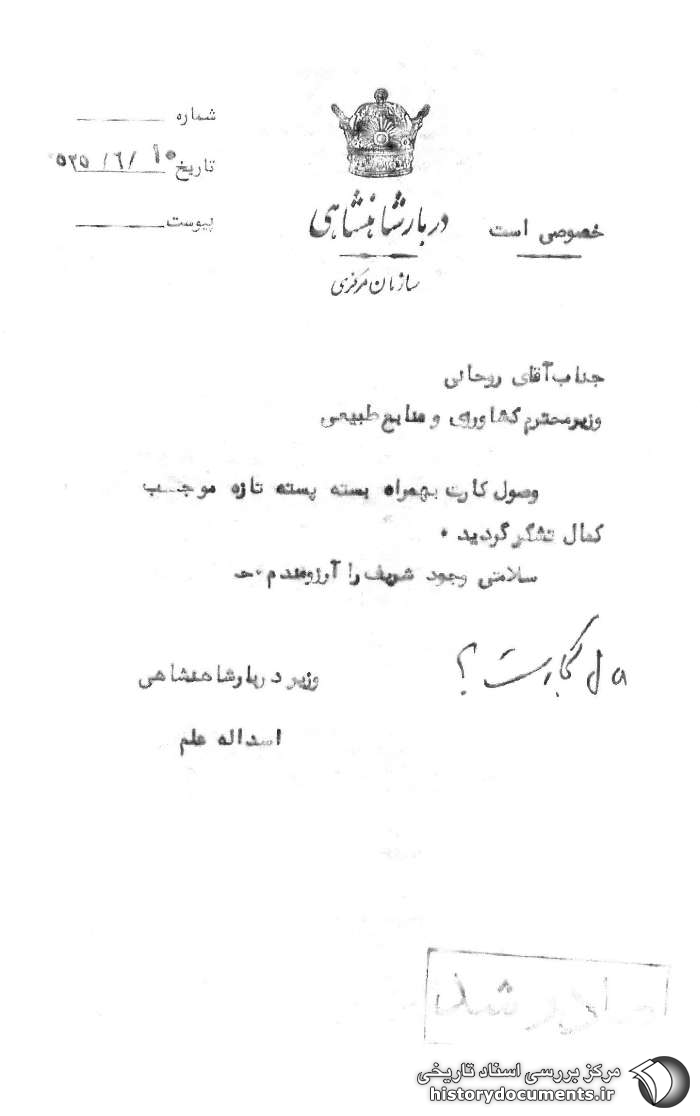 شماره
تاریخ ۱۰ /۶/ ۵۳۵
پیوست
دربار شاهنشاهی
سازمان مرکزی
خصوصی است
جناب آقای روحانی
وزیر محترم کشاورزی و منابع طبیعی
وصول کارت بهمراه بسته پسته تازه موجب
کمال تشکر گردید .
سلامتی وجود شریف را آرزومندم .
وزیر دربار شاهنشاهی
اسداله علم
کجاست ؟
صادر شد
مرکز بررسی اسناد تاریخی
historydocuments.ir